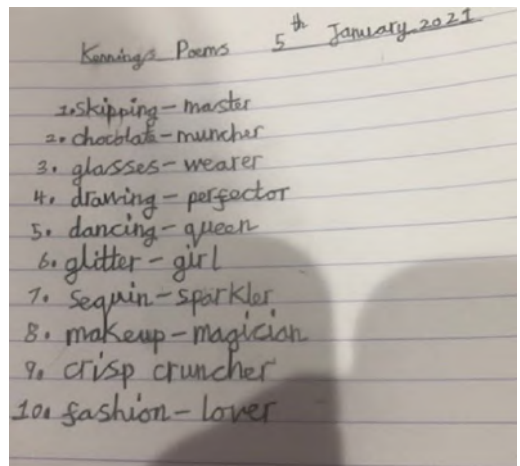 Kennings Poems 5th January 2021
1. skipping - master
2. chocolate - muncher
3. glasses - wearer
4. drawing - perfector
5. dancing - queen
6. glitter - girl
7. sequin - sparkler
8. makeup - magician
9. crisp cruncher
10. fashion - lover